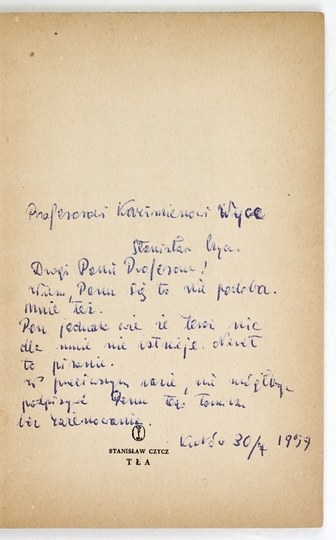 Profesorowi Kazimierzowi Wyce
Stanisław Czycz.
Drogi Panie Profesorze!
Wiem, Panu się to nie podoba.
Mnie też.
Pan jednak wie że teraz nic
dla mnie nie istnieje. Nawet
to pisanie.
W przeciwnym razie, nie mógłbym
podpisać Panu tego tomiku
bez zażenowania.
Kraków 30/
STANISŁAW CZYCZ
TŁA